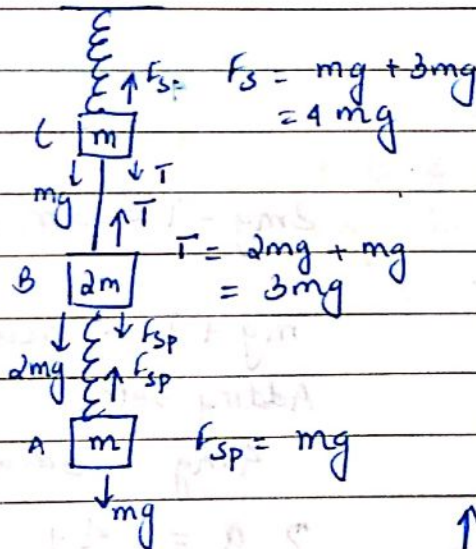 Fs = Fs = mg + 3mg
= 4 mg
C m
mg T
T
T = 2mg + mg
B 2m = 3mg
Fsp
2mg Fsp
A m Fsp = mg
mg